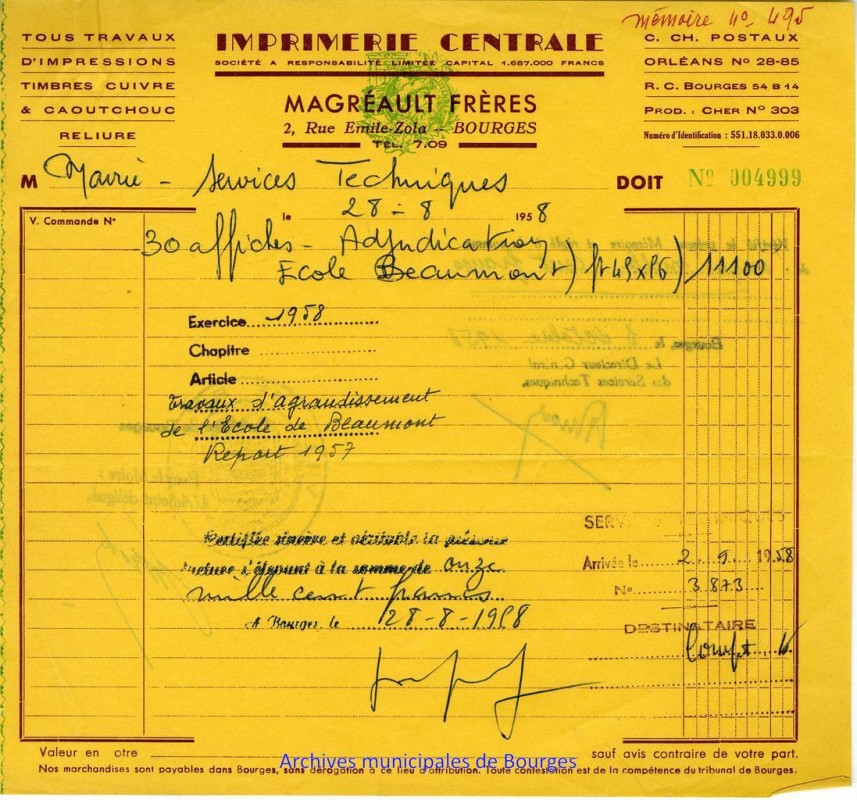 mémoire nº 495
TOUS TRAVAUX
D'IMPRESSIONS
TIMBRES CUIVRE
& CAOUTCHOUC
RELIURE
IMPRIMERIE CENTRALE
SOCIÉTÉ A RESPONSABILITÉ LIMITÉE CAPITAL 1.687.000 FRANCS
MAGRÉAULT FRÈRES
2, Rue Emile-Zola - BOURGES
TÉL. 7.09
C. CH. POSTAUX
ORLÉANS Nº 28-85
R. C. BOURGES 54 B 14
PROD. : CHER Nº 303
Numéro d'Identification : 551.18.033.0.006
M Mairie - Services Techniques DOIT Nº 004999
V. Commande Nº
le 28-8 1958
30 affiches - Adjudication
Ecole Beaumont) 11100
Exercice 1958
Chapitre
Article
Travaux d'agrandissement
de l'Ecole de Beaumont
Report 1957
Certifiée sincère et véritable la présente
facture s'élevant à la somme de onze
mille cent francs
A Bourges, le 28-8-1958
SERV
Arrivée le 2. 9. 1958
Nº 3.873
DESTINATAIRE
Compt
Valeur en otre sauf avis contraire de votre part.
Nos marchandises sont payables dans Bourges, sans dérogation à ce lieu d'attribution. Toute contestation est de la compétence du tribunal de Bourges.
Archives municipales de Bourges